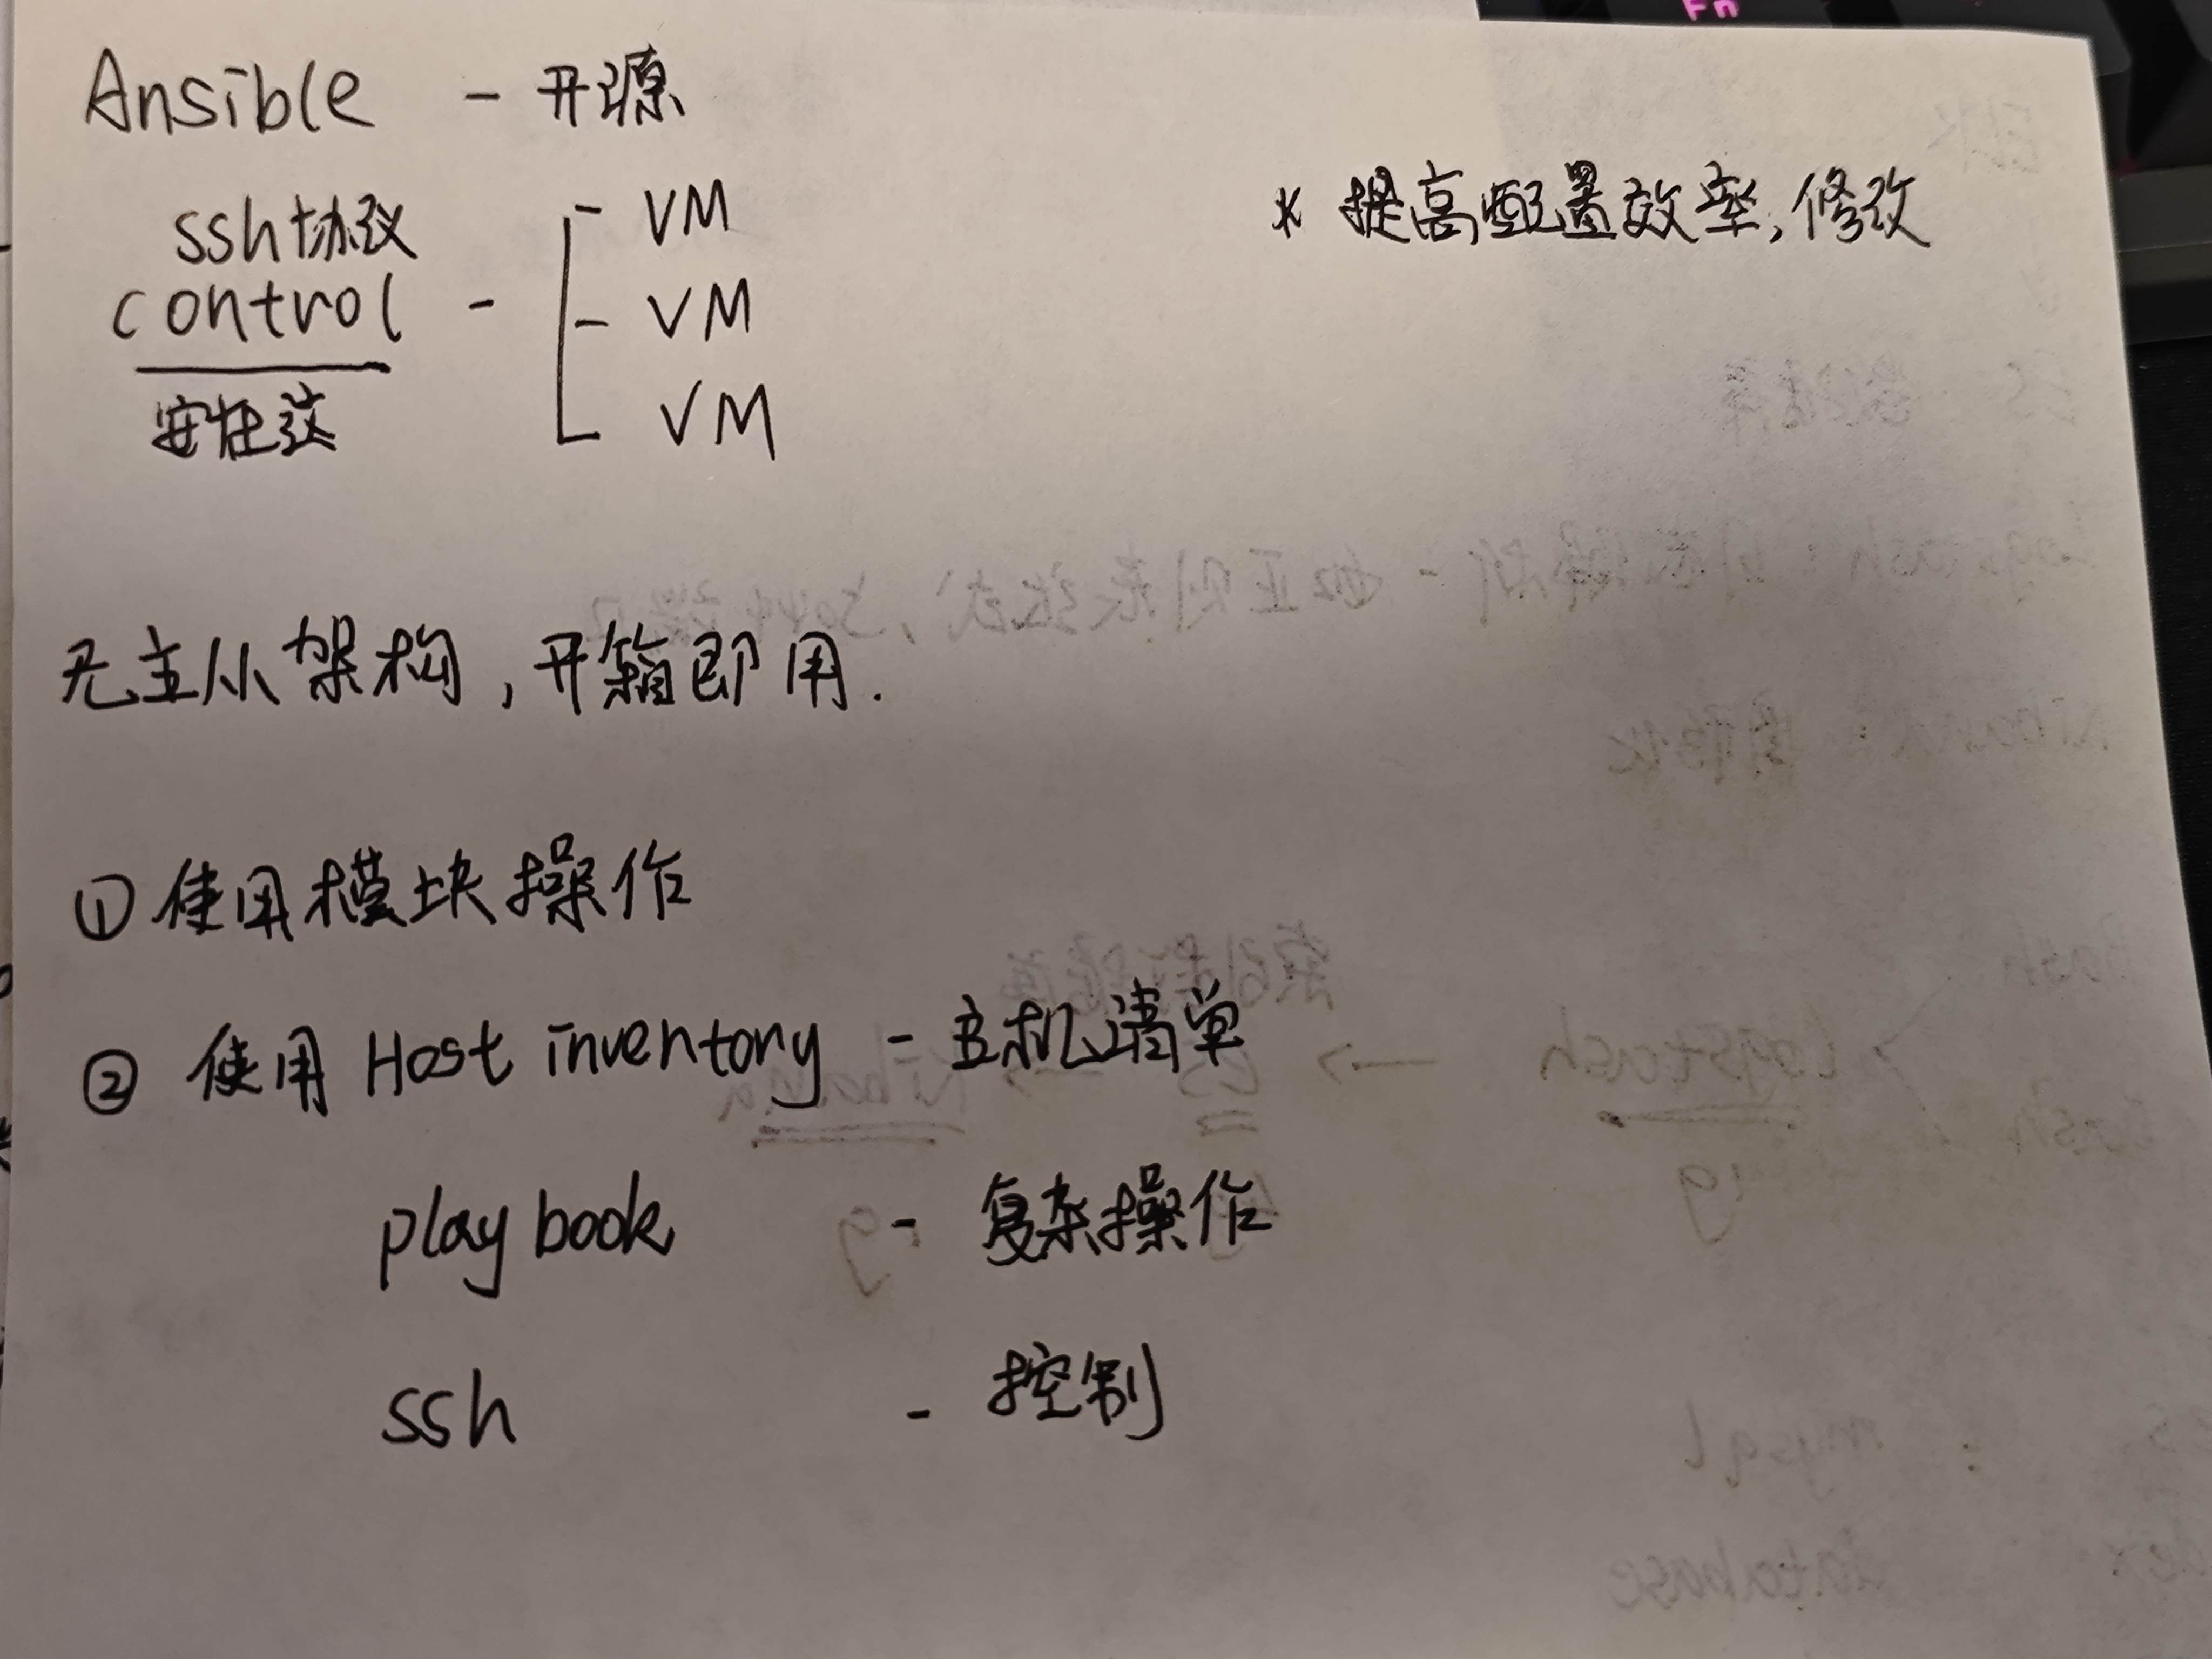 Ansible - 开源
* 提高配置效率,修改
ssh协议
- VM
control - - VM
安在这
VM
无主从架构,开箱即用.
① 使用模块操作
② 使用 Host inventory - 主机清单
playbook - 复杂操作
ssh - 控制
Fn